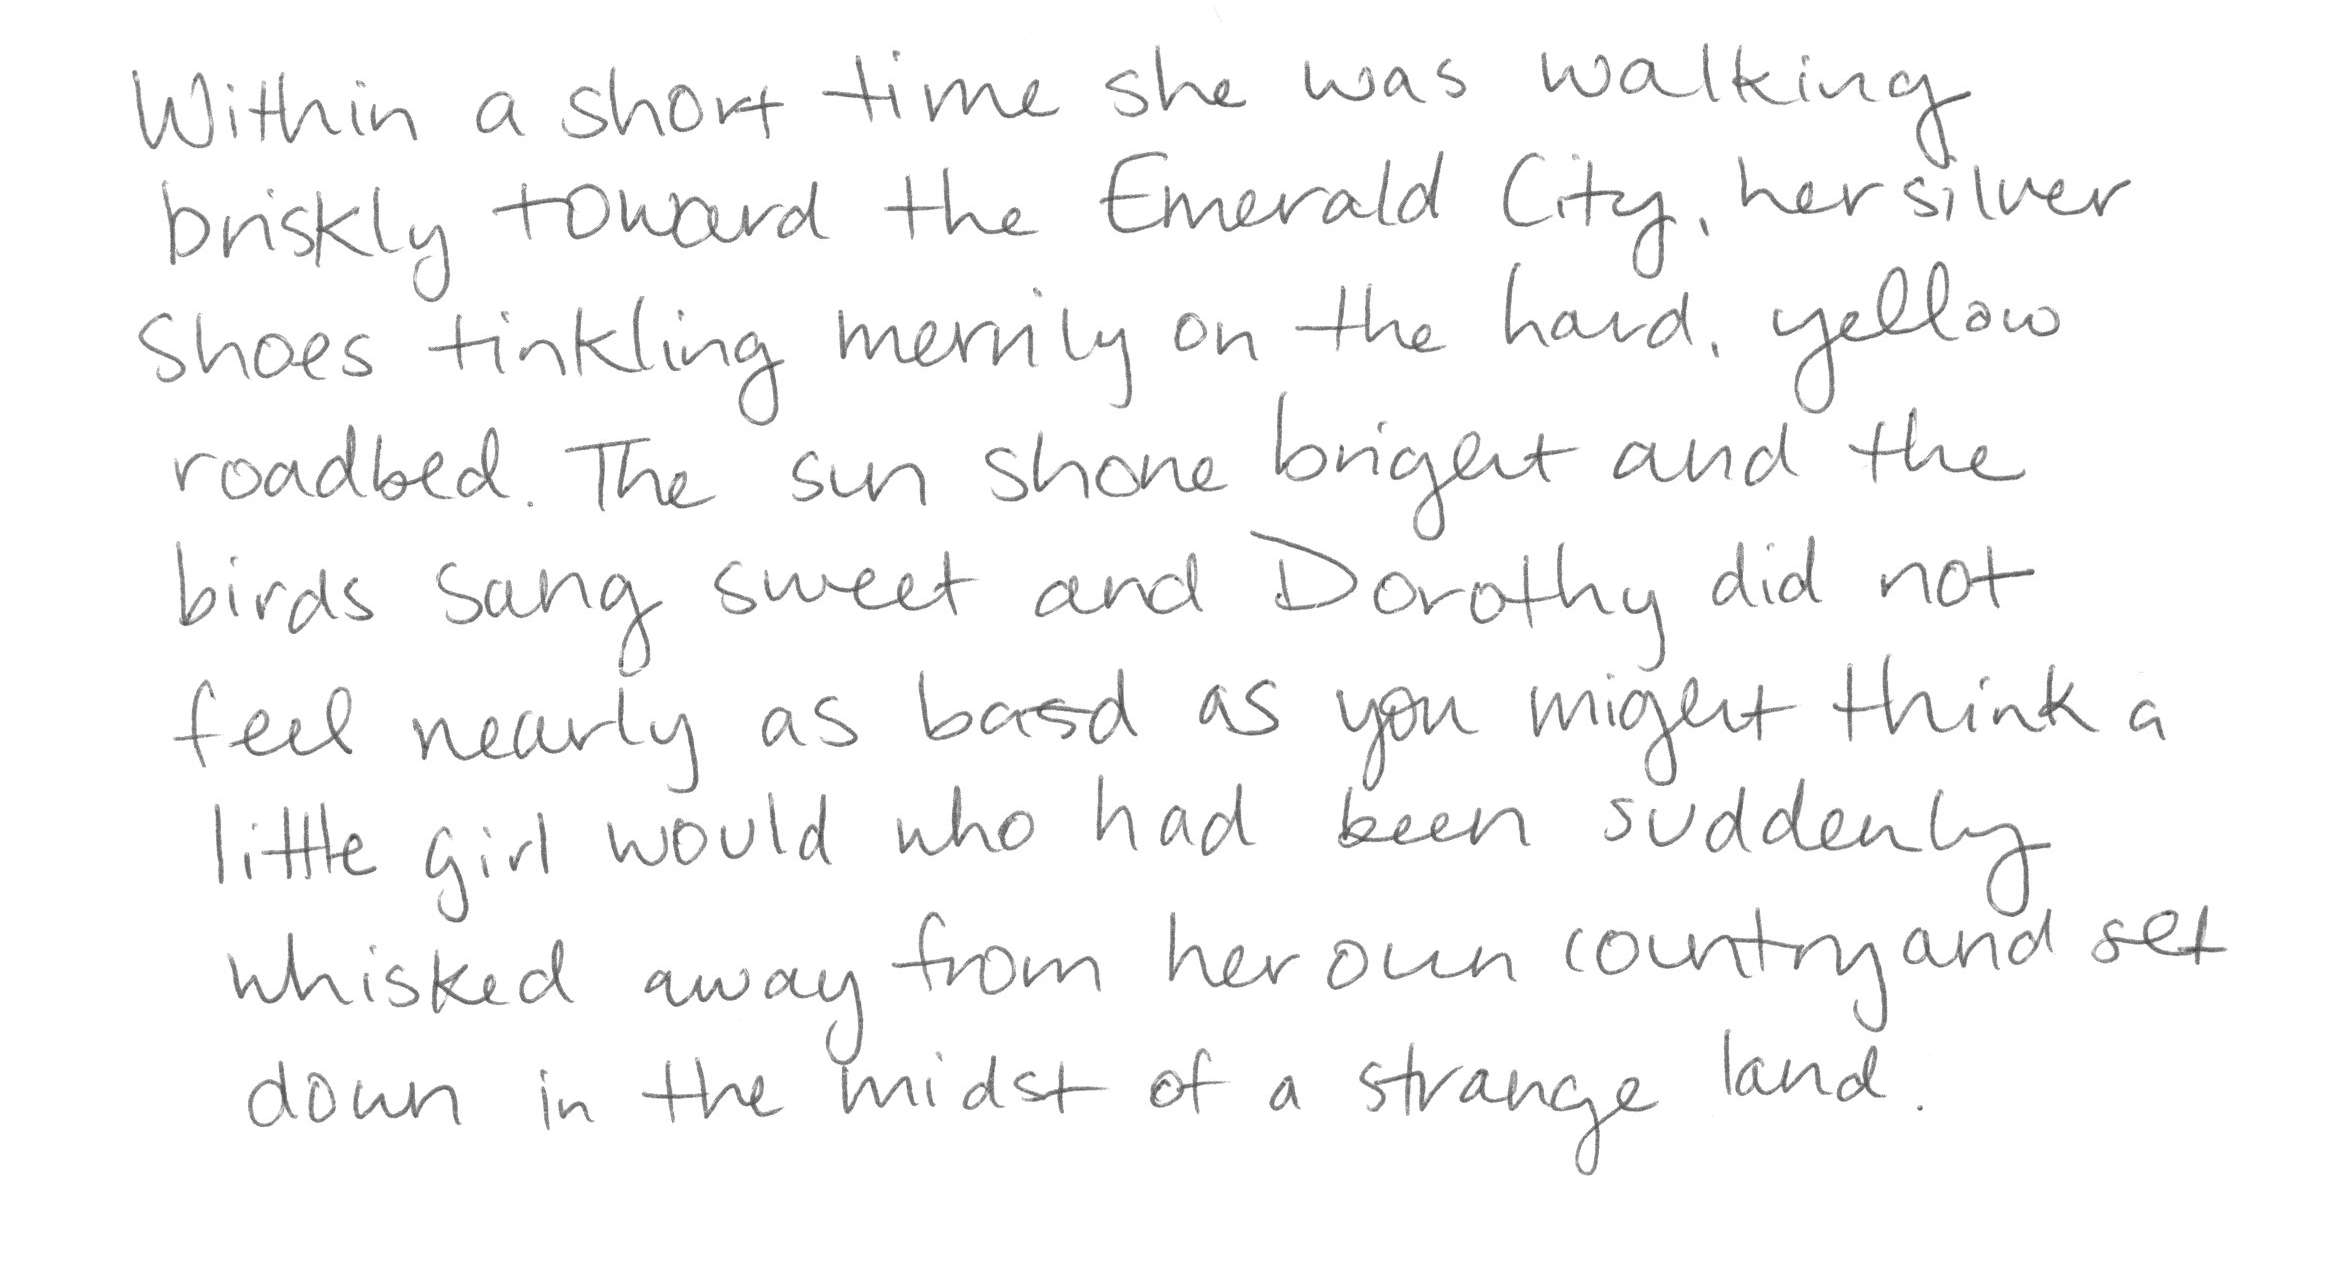 Within a short time she was walking
briskly toward the Emerald City, her silver
shoes tinkling merrily on the hard, yellow
roadbed. The sun shone bright and the
birds sang sweet and Dorothy did not
feel nearly as basd as you might think a
little girl would who had been suddenly
whisked away from her own country and set
down in the midst of a strange land.